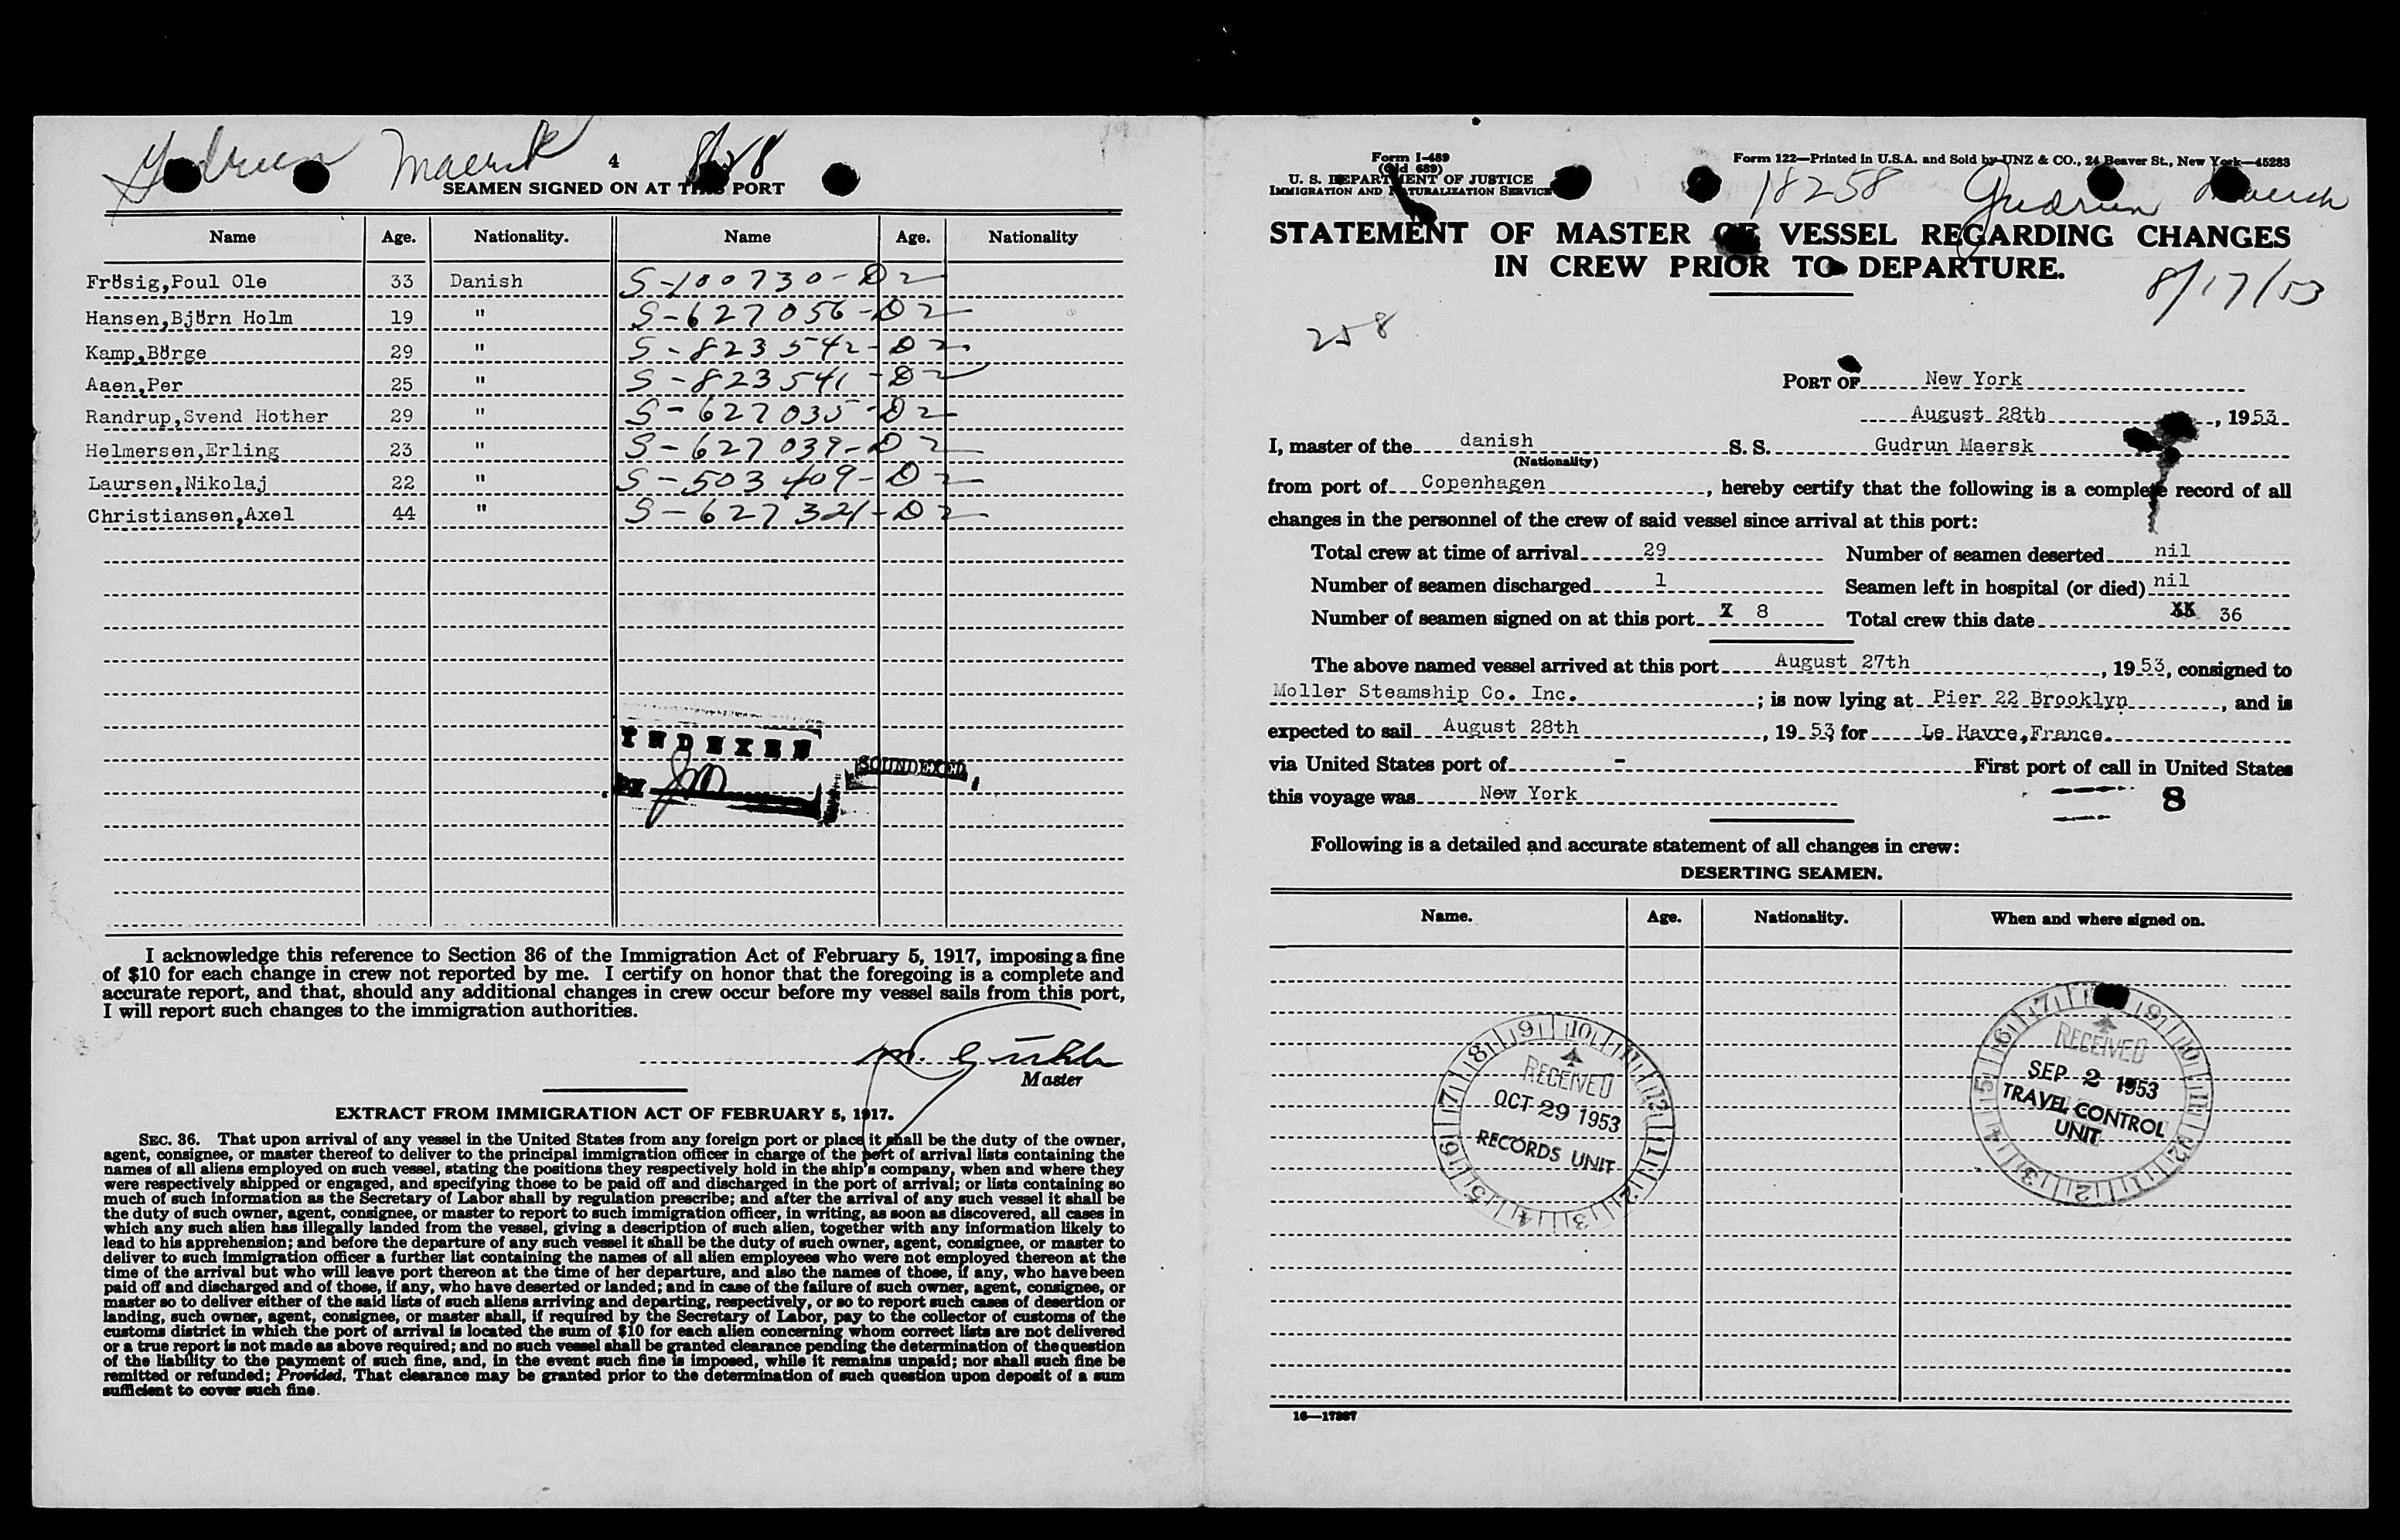 Gudrun Maersk 8/28
4
SEAMEN SIGNED ON AT THIS PORT
Name Age. Nationality. Name Age. Nationality
Frösig,Poul Ole 33 Danish S-100730-D2
Hansen,Björn Holm 19 " S-627056-D2
Kamp,Börge 29 " S-823542-D2
Aaen,Per 25 " S-823541-D2
Randrup,Svend Hother 29 " S-627035-D2
Helmersen,Erling 23 " S-627039-D2
Laursen,Nikolaj 22 " S-503409-D2
Christiansen,Axel 44 " S-627321-D2
INDEXED
BY
SOUNDEXED
I acknowledge this reference to Section 36 of the Immigration Act of February 5, 1917, imposing a fine
of $10 for each change in crew not reported by me. I certify on honor that the foregoing is a complete and
accurate report, and that, should any additional changes in crew occur before my vessel sails from this port,
I will report such changes to the immigration authorities.
Master
EXTRACT FROM IMMIGRATION ACT OF FEBRUARY 5, 1917.
SEC. 36. That upon arrival of any vessel in the United States from any foreign port or place it shall be the duty of the owner,
agent, consignee, or master thereof to deliver to the principal immigration officer in charge of the port of arrival lists containing the
names of all aliens employed on such vessel, stating the positions they respectively hold in the ship's company, when and where they
were respectively shipped or engaged, and specifying those to be paid off and discharged in the port of arrival; or lists containing so
much of such information as the Secretary of Labor shall by regulation prescribe; and after the arrival of any such vessel it shall be
the duty of such owner, agent, consignee, or master to report to such immigration officer, in writing, as soon as discovered, all cases in
which any such alien has illegally landed from the vessel, giving a description of such alien, together with any information likely to
lead to his apprehension; and before the departure of any such vessel it shall be the duty of such owner, agent, consignee, or master to
deliver to such immigration officer a further list containing the names of all alien employees who were not employed thereon at the
time of the arrival but who will leave port thereon at the time of her departure, and also the names of those, if any, who have been
paid off and discharged and of those, if any, who have deserted or landed; and in case of the failure of such owner, agent, consignee, or
master so to deliver either of the said lists of such aliens arriving and departing, respectively, or so to report such cases of desertion or
landing, such owner, agent, consignee, or master shall, if required by the Secretary of Labor, pay to the collector of customs of the
customs district in which the port of arrival is located the sum of $10 for each alien concerning whom correct lists are not delivered
or a true report is not made as above required; and no such vessel shall be granted clearance pending the determination of the question
of the liability to the payment of such fine, and, in the event such fine is imposed, while it remains unpaid; nor shall such fine be
remitted or refunded; Provided, That clearance may be granted prior to the determination of such question upon deposit of a sum
sufficient to cover such fine.
Form I-489
(Old 689)
U. S. DEPARTMENT OF JUSTICE
IMMIGRATION AND NATURALIZATION SERVICE
Form 122—Printed in U.S.A. and Sold by UNZ & CO., 24 Beaver St., New York—45283
18258 Gudrun Maersk
STATEMENT OF MASTER OF VESSEL REGARDING CHANGES
IN CREW PRIOR TO DEPARTURE.
8/17/53
258
PORT OF New York
August 28th, 1953
I, master of the danish S. S. Gudrun Maersk
(Nationality)
from port of Copenhagen, hereby certify that the following is a complete record of all
changes in the personnel of the crew of said vessel since arrival at this port:
Total crew at time of arrival 29 Number of seamen deserted nil
Number of seamen discharged 1 Seamen left in hospital (or died) nil
Number of seamen signed on at this port 8 Total crew this date XX 36
The above named vessel arrived at this port August 27th, 1953, consigned to
Moller Steamship Co. Inc.; is now lying at Pier 22 Brooklyn, and is
expected to sail August 28th, 1953 for Le Havre,France.
via United States port of - First port of call in United States
this voyage was New York
8
Following is a detailed and accurate statement of all changes in crew:
DESERTING SEAMEN.
Name. Age. Nationality. When and where signed on.
RECEIVED
OCT 29 1953
RECORDS UNIT
RECEIVED
SEP 2 1953
TRAVEL CONTROL
UNIT
16—17367